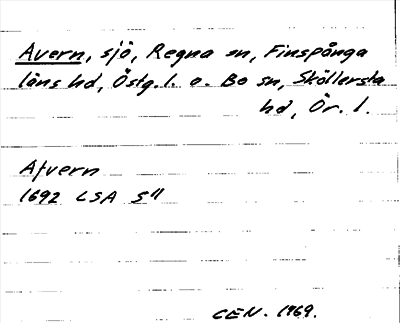 Avern, sjö, Regna sn, Finspånga
läns hd, Östg. l. o. Bo sn, Sköllersta
hd, Ör. l.
Afvern
1692 LSA S11
CEN. 1969.